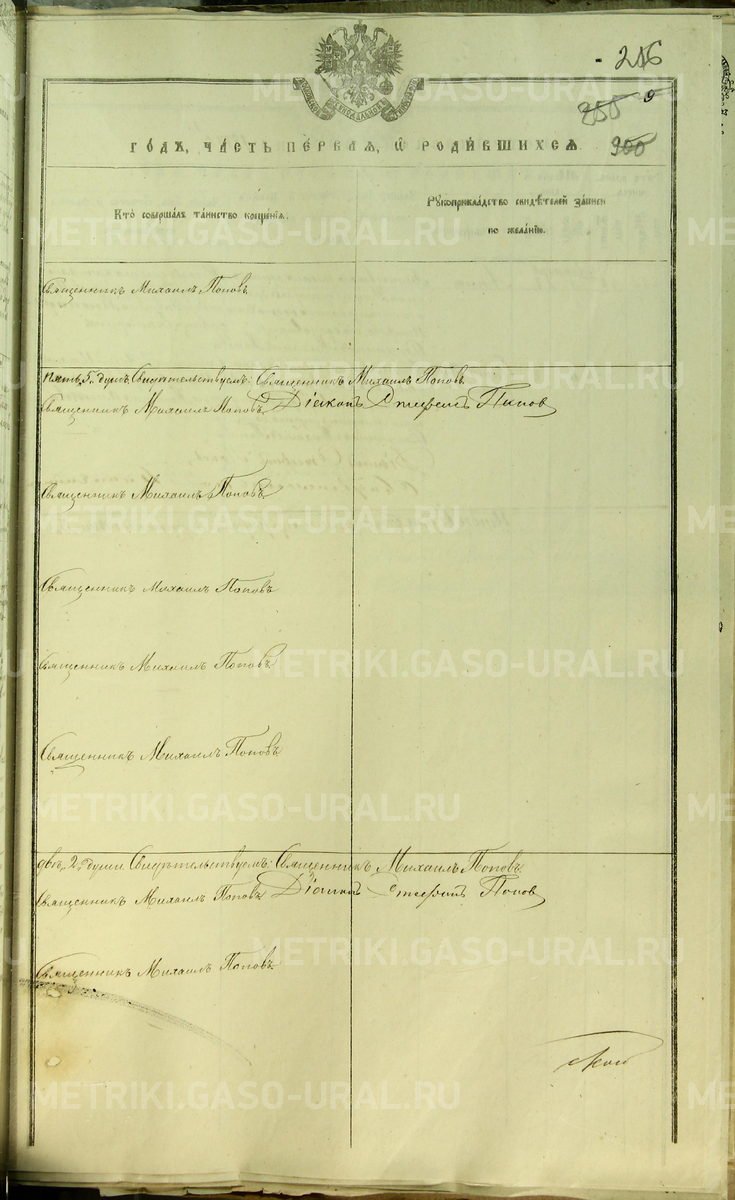 216
255 9
300
ГО́ДЪ, ЧА́СТЬ ПЕ́РВАѦ, Ѡ҆ РОДИ́ВШИХСѦ.
Кто̀ совершалъ та́инство креще́нїѧ.
Рꙋкоприкла́дство свидѣ́телей за́писи
по жела́нїю.
Священникъ Михаилъ Поповъ
пять, 5. душъ, Свидѣтельствуемъ: Священникъ Михаилъ Поповъ
Священникъ Михаилъ Поповъ Діаконъ Стефанъ Попов
Священникъ Михаилъ Поповъ
Священникъ Михаилъ Поповъ
Священникъ Михаилъ Поповъ
Священникъ Михаилъ Поповъ
двѣ, 2. души Свидѣтельствуемъ: Священникъ Михаилъ Поповъ.
Священникъ Михаилъ Поповъ Діаконъ Стефанъ Попов
Священникъ Михаилъ Поповъ
METRIKI.GASO-URAL.RU